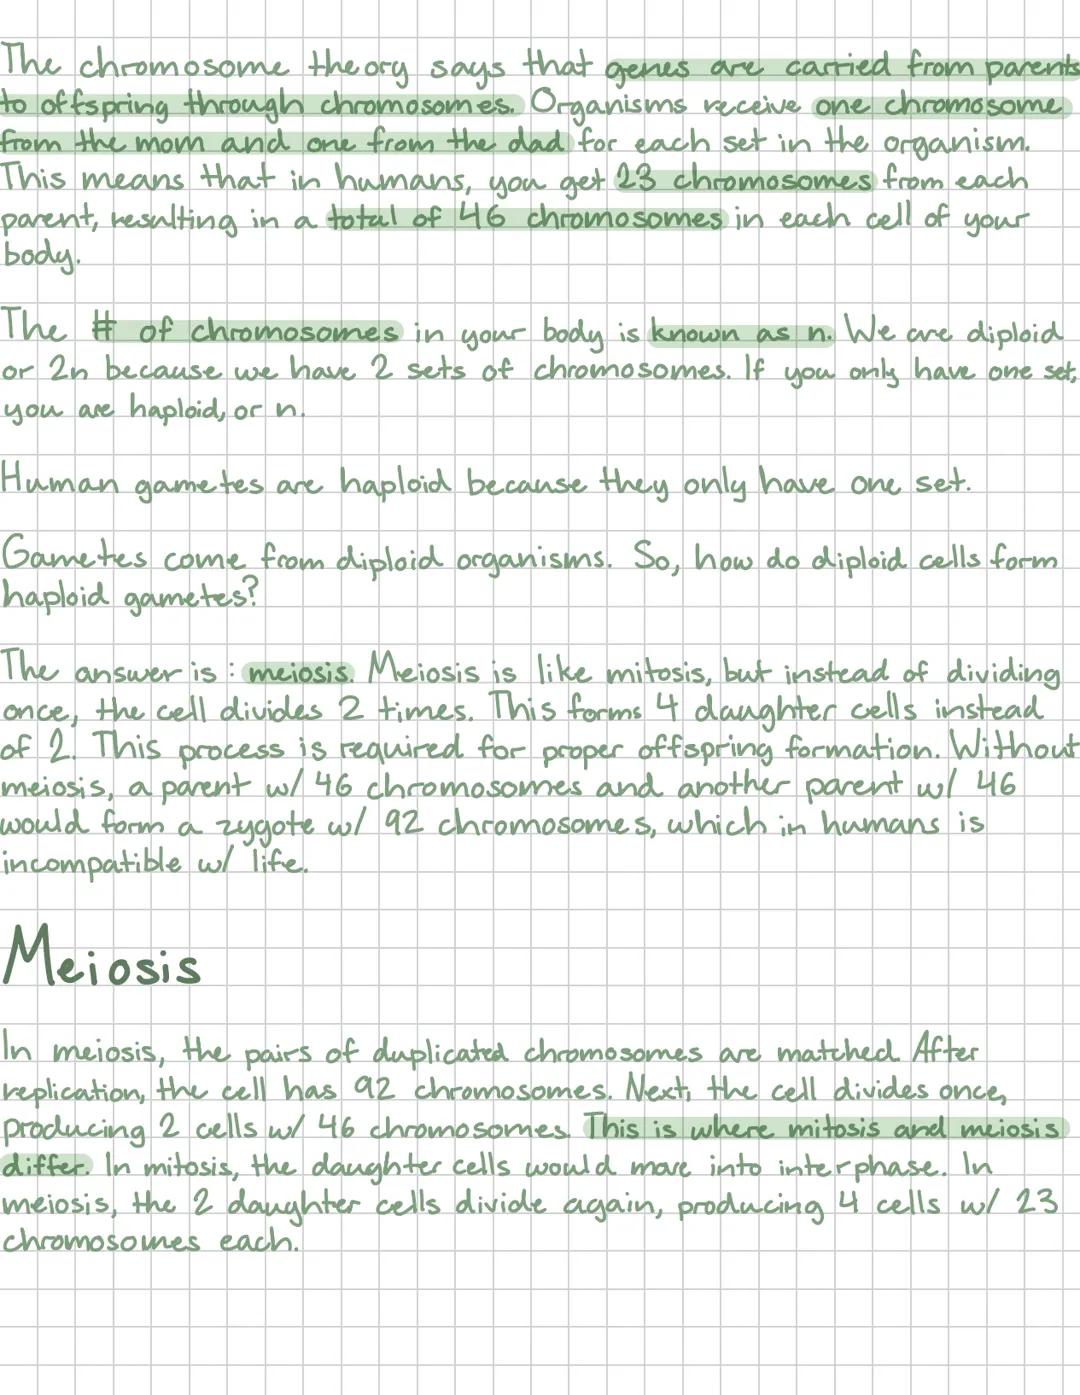 The chromosome theory says that genes are carried from parents
to offspring through chromosomes. Organisms receive one chromosome
from the mom and one from the dad for each set in the organism.
This means that in humans, you get 23 chromosomes from each
parent, resulting in a total of 46 chromosomes in each cell of your
body.
The # of chromosomes in your body is known as n. We are diploid
or 2n because we have 2 sets of chromosomes. If you only have one set,
you are haploid, or n.
Human gametes are haploid because they only have one set.
Gametes come from diploid organisms. So, how do diploid cells form
haploid gametes?
The answer is : meiosis. Meiosis is like mitosis, but instead of dividing
once, the cell divides 2 times. This forms 4 daughter cells instead
of 2. This process is required for proper offspring formation. Without
meiosis, a parent w/ 46 chromosomes and another parent w/ 46
would form a zygote w/ 92 chromosomes, which in humans is
incompatible w/ life.
Meiosis
In meiosis, the pairs of duplicated chromosomes are matched. After
replication, the cell has 92 chromosomes. Next, the cell divides once,
producing 2 cells w/ 46 chromosomes. This is where mitosis and meiosis
differ. In mitosis, the daughter cells would move into interphase. In
meiosis, the 2 daughter cells divide again, producing 4 cells w/ 23
chromosomes each.